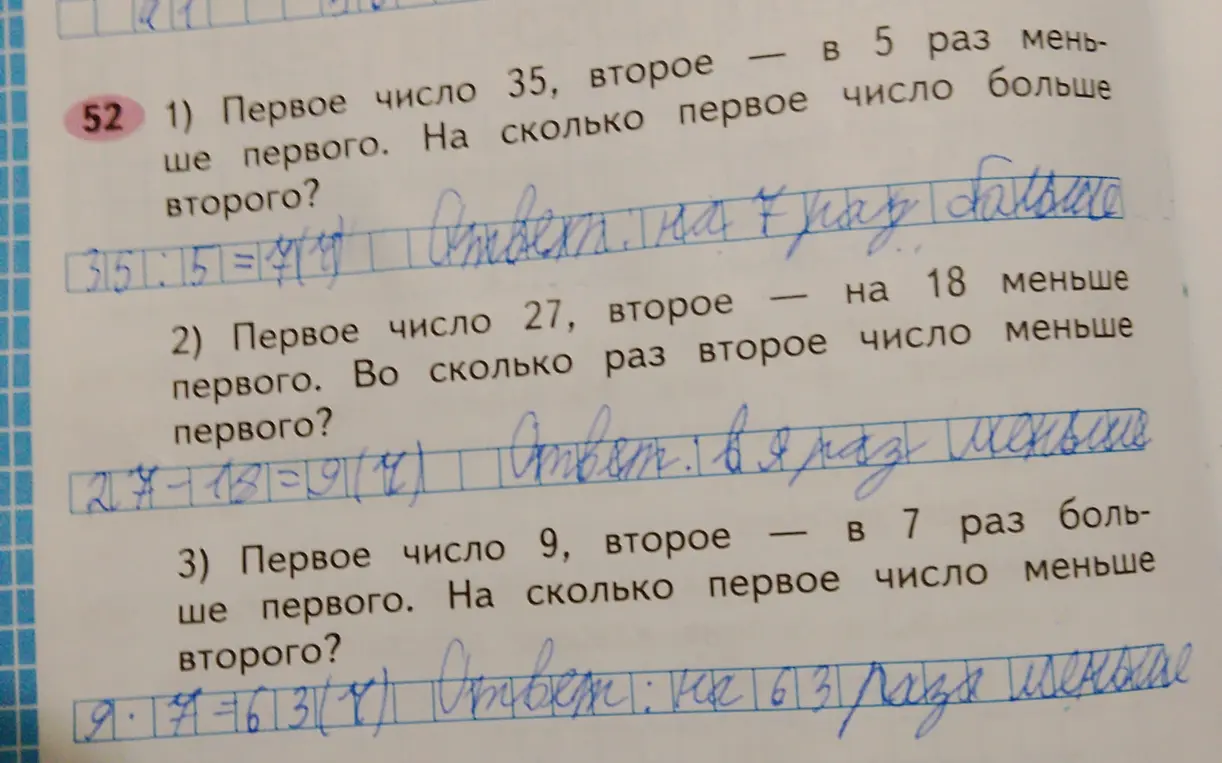 52 1) Первое число 35, второе — в 5 раз мень-
ше первого. На сколько первое число больше
второго?
35:5=7(ч) Ответ: на 7 раз больше
2) Первое число 27, второе — на 18 меньше
первого. Во сколько раз второе число меньше
первого?
27-18=9(ч) Ответ: в 9 раз меньше
3) Первое число 9, второе — в 7 раз боль-
ше первого. На сколько первое число меньше
второго?
9·7=63(ч) Ответ: на 63 раза меньше